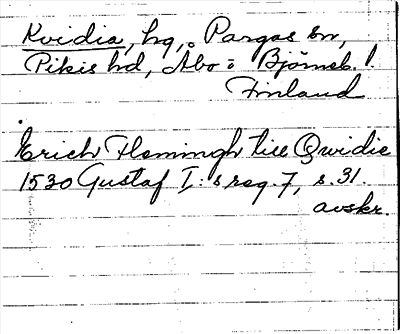 Kvidia, hg, Pargas sn,
Pikis hd, Åbo o Björneb. l
Finland
Erich Flemingh till Qvidie
1530 Gustaf I:s reg. 7, s. 31.
avskr.